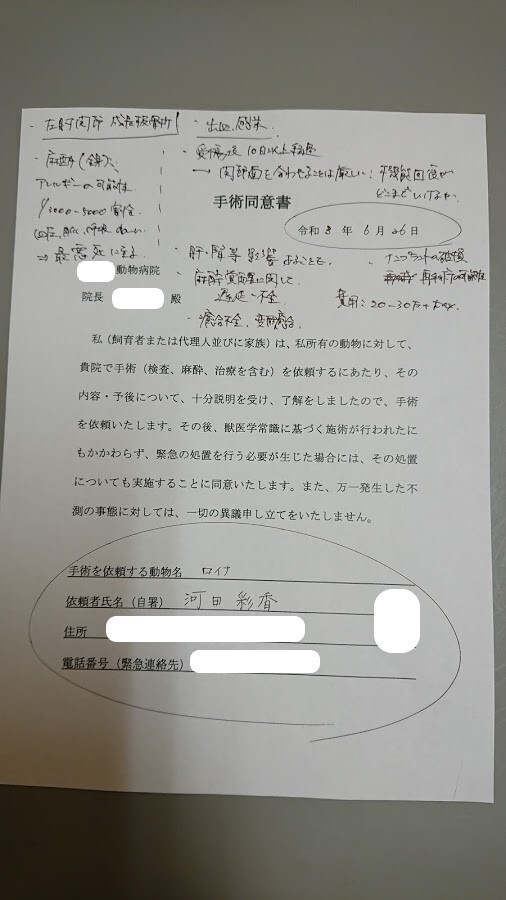 ・左肘関節 成長板骨折
・出血、感染
・受傷後10日以上経過
→ 関節面を合わせることは厳しい!
どこまでいけるか
・麻酔(鎮)
アレルギーの可能性
1/3000-5000 割合
⇒ 最悪死に至る
手術同意書
令和 3 年 6 月 26 日
・肝・腎等 影響
・麻酔覚醒に関して
遅延・不全
・癒合不全、変形癒合
・インプラントの破損
再手術の可能性
費用:20-30万+
動物病院
院長 殿
私(飼育者または代理人並びに家族)は、私所有の動物に対して、
貴院で手術(検査、麻酔、治療を含む)を依頼するにあたり、その
内容・予後について、十分説明を受け、了解をしましたので、手術
を依頼いたします。その後、獣医学常識に基づく施術が行われたに
もかかわらず、緊急の処置を行う必要が生じた場合には、その処置
についても実施することに同意いたします。また、万一発生した不
測の事態に対しては、一切の異議申し立てをいたしません。
手術を依頼する動物名 ロイナ
依頼者氏名(自署) 河田 彩香
住所
電話番号(緊急連絡先)